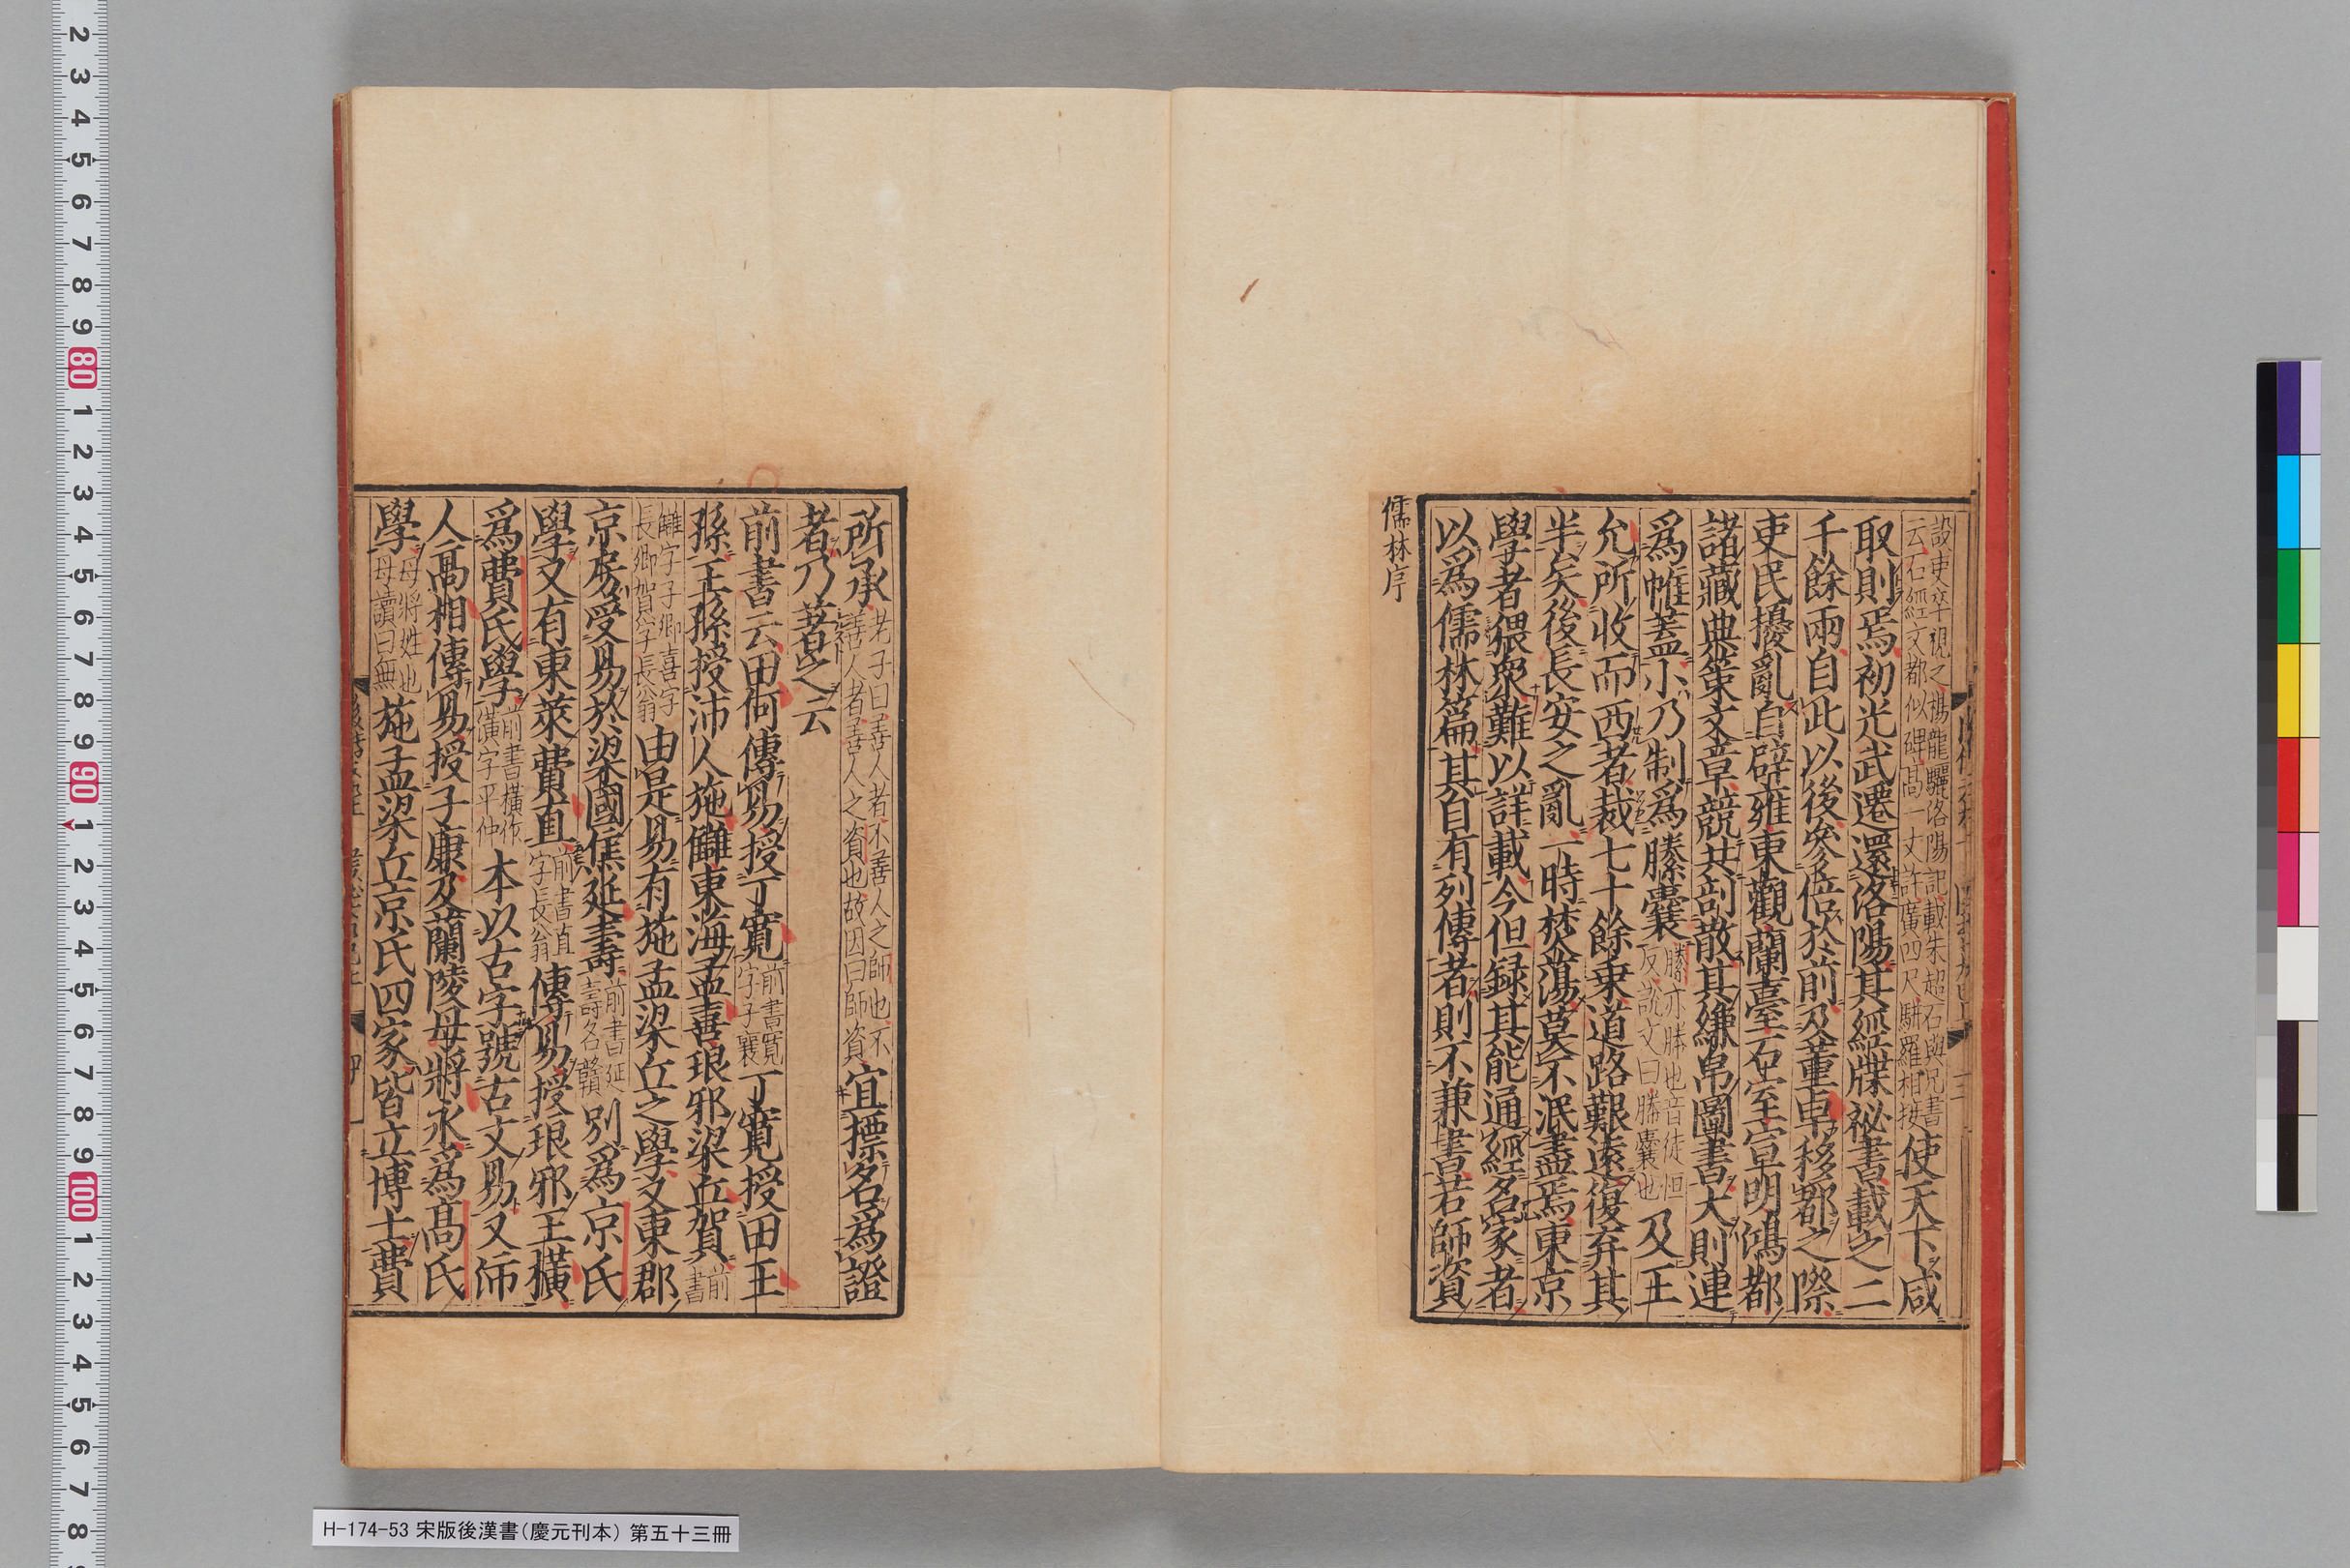 設吏卒視之楊龍驤洛陽記載朱超石與兄書
云石經文都似碑高一丈許廣四尺駢羅相接
使天下咸
取則焉初光武遷還洛陽其經牒祕書載之二
千餘兩自此以後參倍於前及董卓移都之際
吏民擾亂自辟雍東觀蘭臺石室宣明鴻都
諸藏典策文章競共剖散其縑帛圖書大則連
爲帷蓋小乃制爲縢囊
縢亦勝也音徒恒
反說文曰縢囊也
及王
允所收而西者裁七十餘乗道路艱遠復弃其
半矣後長安之亂一時焚蕩莫不泯盡焉東京
學者猥衆難以詳載今但録其能通經名家者
以爲儒林篇其自有列傳者則不兼書若師資
儒林序
所承
老子曰善人者不善人之師也不
善人者善人之資也故因曰師資
宜標名爲證
者乃著之云
前書云田何傳易授丁寬
前書寬
字子襄
丁寬授田王
孫王孫授沛人施讎東海孟喜琅邪梁丘賀
前
書
讎字子卿喜字
長卿賀字長翁
由是易有施孟梁丘之學又東郡
京房受易於梁國焦延壽
前書延
壽名贛
別爲京氏
學又有東萊費直
前書直
字長翁
傳易授琅邪王横
爲費氏學
前書横作
璜字平仲
本以古字號古文易又沛
人高相傳易授子康及蘭陵毋將永爲高氏
學
毋將姓也
毋讀曰無
施孟梁丘京氏四家皆立博士費
H-174-53 宋版後漢書（慶元刊本） 第五十三冊
2
3
4
5
6
7
8
9
80
1
2
3
4
5
6
7
8
9
90
1
2
3
4
5
6
7
8
9
100
1
2
3
4
5
6
7
8